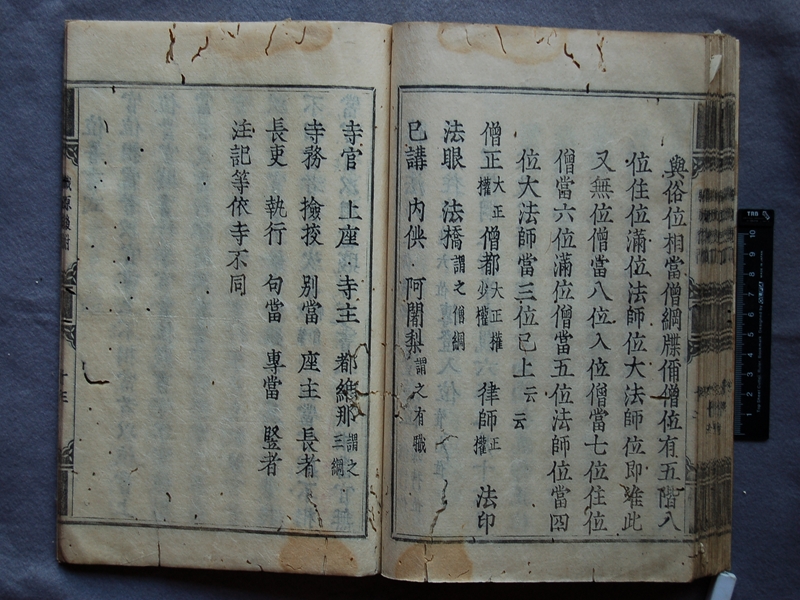 與俗位相當僧綱牒俻僧位有五階入
位住位滿位法師位大法師位即准此
又無位僧當八位入位僧當七位住位
僧當六位滿位僧當五位法師位當四
位大法師當三位已上云云
僧正大正權 僧都大正權少權 律師正權 法印
法眼 法橋謂之僧綱
已講 内供 阿闍梨謂之有職
寺官 上座 寺主 都維那謂之三綱
寺務 撿挍 別當 座主 長者
長吏 執行 勾當 專當 竪者
注記等依寺不同